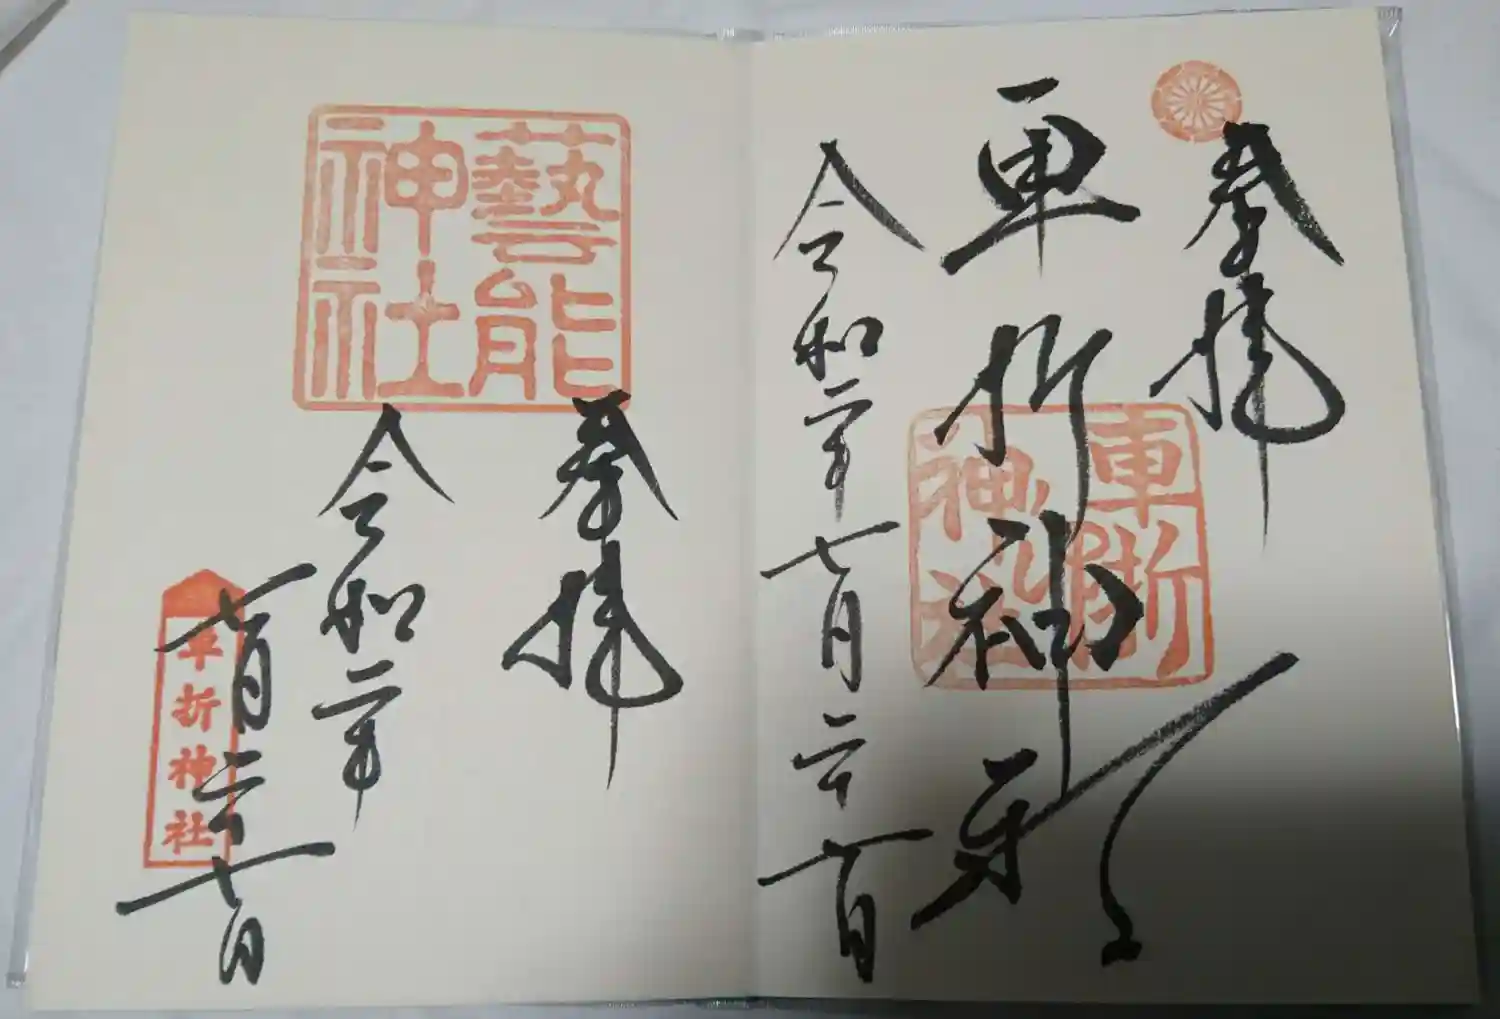 奉拝
車折神社
車折
神社
令和二年七月二十七日
藝能
神社
奉拝
令和二年
七月二十七日
車折神社